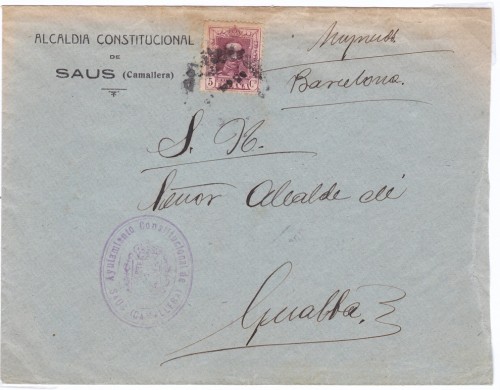 ALCALDIA CONSTITUCIONAL
DE
SAUS (Camallera)
5 Cs
Barcelona.
S. N.
Señor Alcalde de
Gualba
Ayuntamiento Constitucional de
SAUS (CAMALLERA)